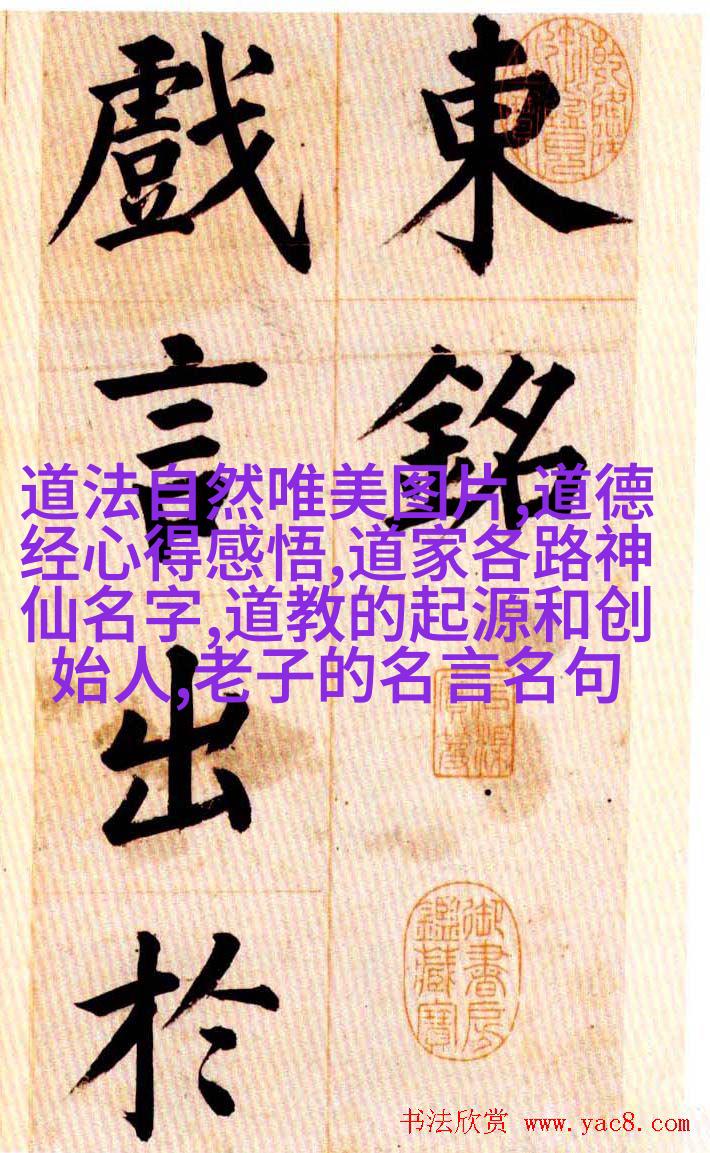 東銘
戲言出於
道法自然唯美图片,道德
经心得感悟,道家各路神
仙名字,道教的起源和创
始人,老子的名言名句
御書房鑑藏寶
书法欣赏 www.yac8.com